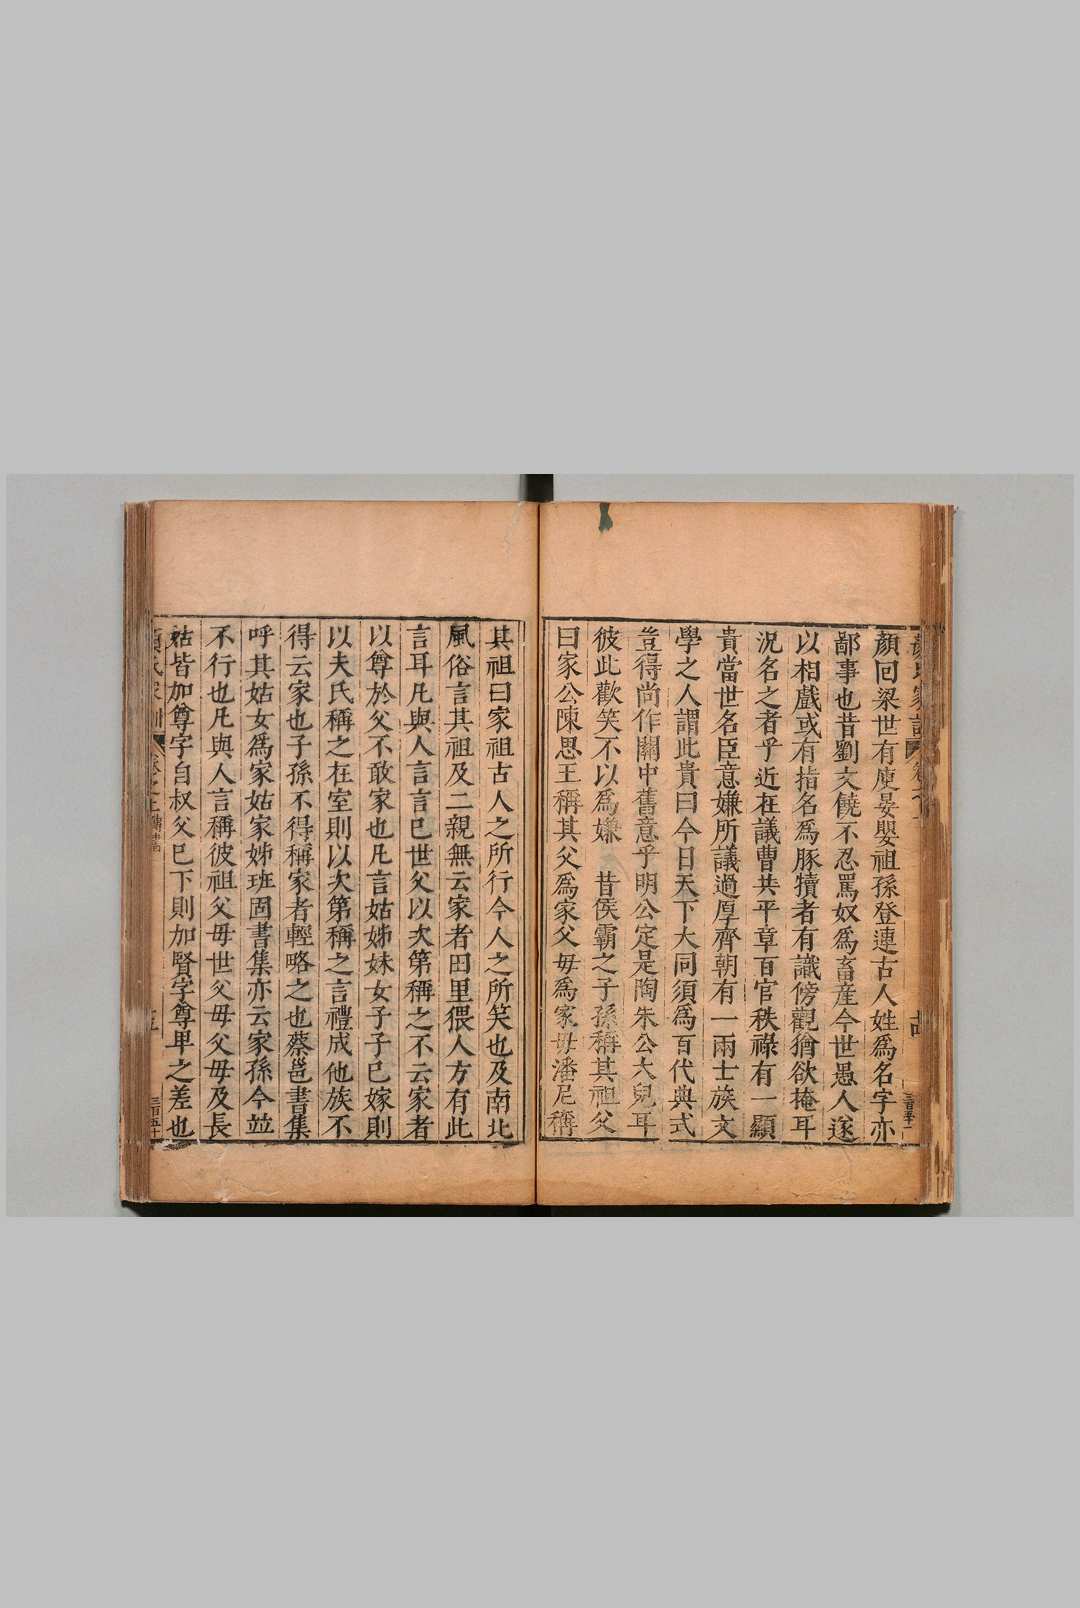 顔回梁世有庾晏嬰祖孫登連古人姓爲名字亦
鄙事也昔劉文饒不忍罵奴爲畜産今世愚人遂
以相戲或有指名爲豚犢者有識傍觀猶欲掩耳
況名之者乎近在議曹共平章百官秩祿有一顯
貴當世名臣意嫌所議過厚齊朝有一兩士族文
學之人謂此貴曰今日天下大同須爲百代典式
豈得尚作關中舊意乎明公定是陶朱公大兒耳
彼此歡笑不以爲嫌　昔侯霸之子孫稱其祖父
曰家公陳思王稱其父爲家父母爲家母潘尼稱
其祖曰家祖古人之所行今人之所笑也及南北
風俗言其祖及二親無云家者田里猥人方有此
言耳凡與人言言已世父以次第稱之不云家者
以尊於父不敢家也凡言姑姊妹女子子已嫁則
以夫氏稱之在室則以次第稱之言禮成他族不
得云家也子孫不得稱家者輕略之也蔡邕書集
呼其姑女爲家姑家姊班固書集亦云家孫今並
不行也凡與人言稱彼祖父母世父母父母及長
姑皆加尊字自叔父已下則加賢字尊卑之差也